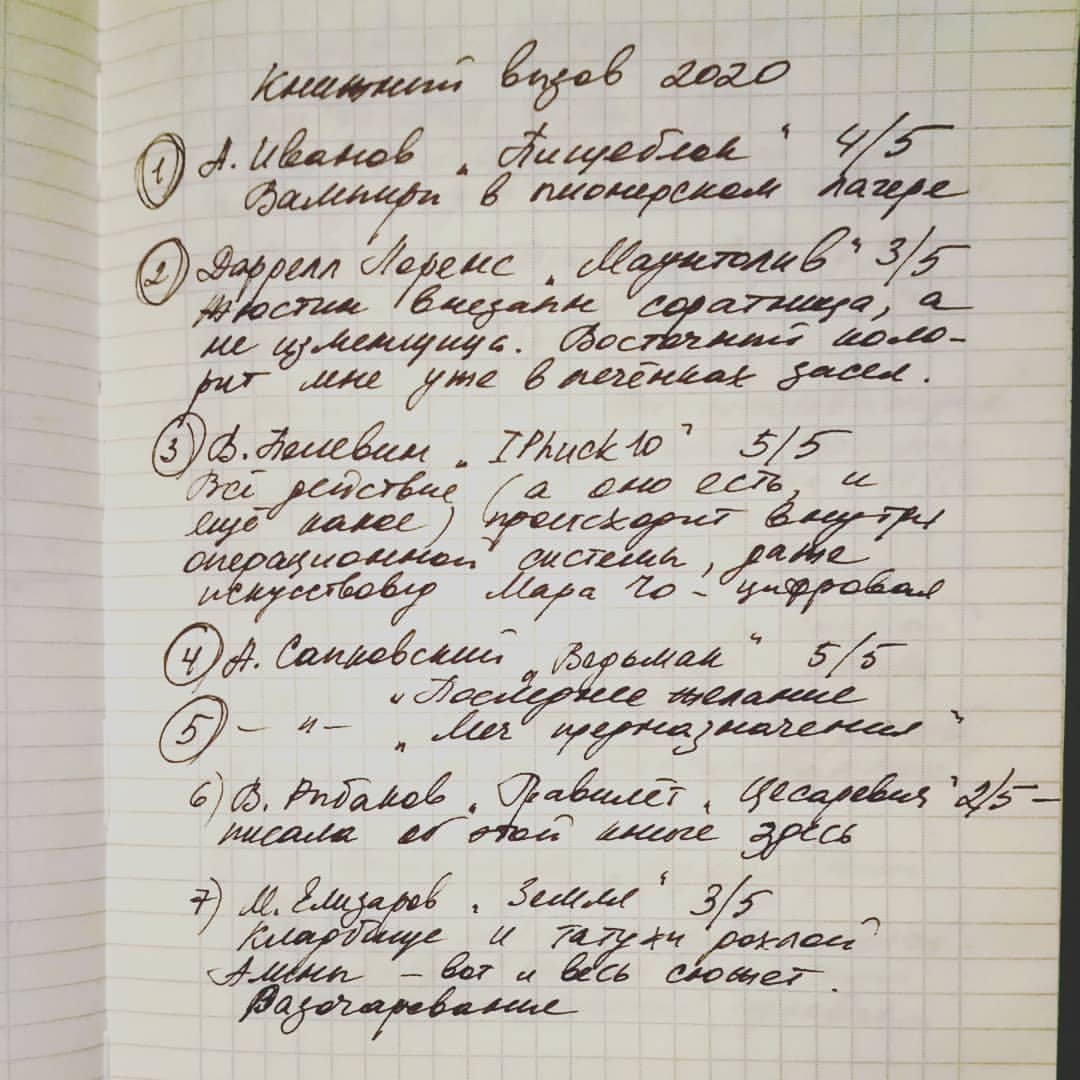 Книжний вызов 2020
1 А. Иванов „Пищеблок" 4/5
Вампиры в пионерском лагере
2 Даррелл Лоренс „Маунтолив" 3/5
Жюстин внезапн соратница, а
не изменщица. Восточный коло-
рит мне уже в печёнках засел.
3) В. Пелевин „IPhuck 10" 5/5
Всё действие (а оно есть, и
ещё какое) происходит внутри
операционной системы, даже
искусствовед Мара Чо - цифровая
4 А. Сапковский „Ведьмак" 5/5
„Последнее желание
5 - " - „Меч предназначения"
6) В. Рыбаков „Травилёт „Цесаревич" 2/5 -
писала об этой книге здесь
7) М. Елизаров „Земля" 3/5
Кладбище и татухи дохлой
Алины - вот и весь сюжет.
Разочарование